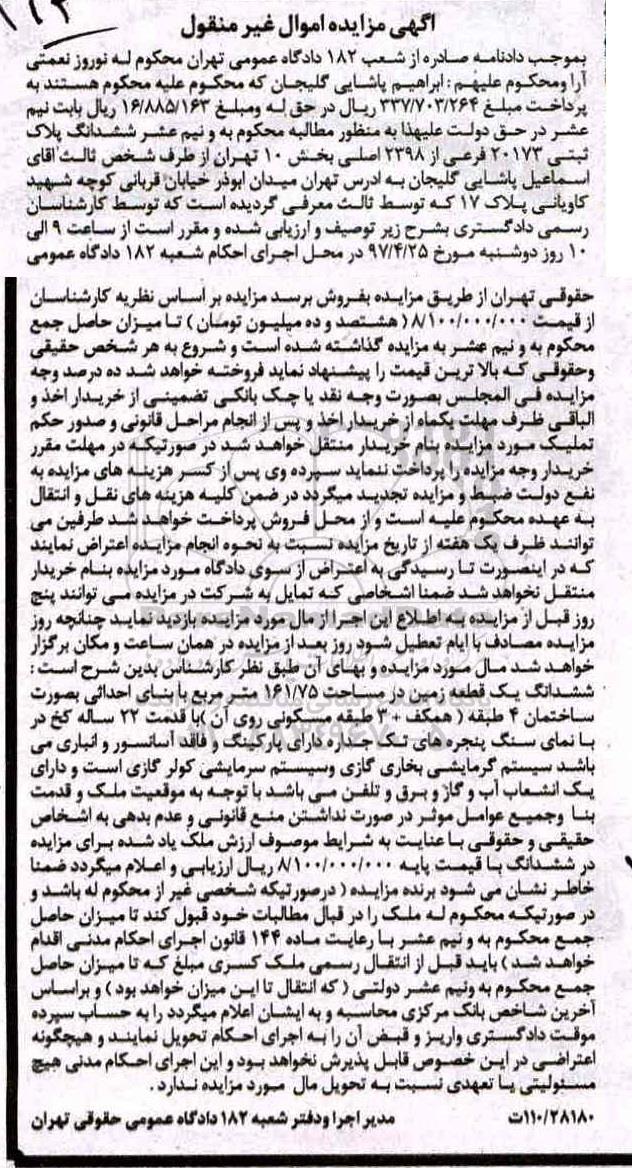 آگهی مزایده اموال غیر منقول
بموجب دادنامه صادره از شعب ۱۸۲ دادگاه عمومی تهران محکوم له نوروز نعمتی
آرا ومحکوم علیهم : ابراهیم پاشایی گلیجان که محکوم علیه محکوم هستند به
پرداخت مبلغ ۳۳۷/۷۰۳/۲۶۴ ریال در حق له ومبلغ ۱۶/۸۸۵/۱۶۳ ریال بابت نیم
عشر در حق دولت علیهذا به منظور مطالبه محکوم به و نیم عشر ششدانگ پلاک
ثبتی ۲۰۱۷۳ فرعی از ۲۳۹۸ اصلی بخش ۱۰ تهران از طرف شخص ثالث آقای
اسماعیل پاشایی گلیجان به ادرس تهران میدان ابوذر خیابان قربانی کوچه شهید
کاویانی پلاک ۱۷ که توسط ثالث معرفی گردیده است که توسط کارشناسان
رسمی دادگستری بشرح زیر توصیف و ارزیابی شده و مقرر است از ساعت ۹ الی
۱۰ روز دوشنبه مورخ ۹۷/۴/۲۵ در محل اجرای احکام شعبه ۱۸۲ دادگاه عمومی
حقوقی تهران از طریق مزایده بفروش برسد مزایده بر اساس نظریه کارشناسان
از قیمت ۸/۱۰۰/۰۰۰/۰۰۰ ( هشتصد و ده میلیون تومان ) تا میزان حاصل جمع
محکوم به و نیم عشر به مزایده گذاشته شده است و شروع به هر شخص حقیقی
وحقوقی که بالا ترین قیمت را پیشنهاد نماید فروخته خواهد شد ده درصد وجه
مزایده فی المجلس بصورت وجه نقد یا چک بانکی تضمینی از خریدار اخذ و
الباقی ظرف مهلت یکماه از خریدار اخذ و پس از انجام مراحل قانونی و صدور حکم
تملیک مورد مزایده بنام خریدار منتقل خواهد شد در صورتیکه در مهلت مقرر
خریدار وجه مزایده را پرداخت ننماید سپرده وی پس از کسر هزینه های مزایده به
نفع دولت ضبط و مزایده تجدید میگردد در ضمن کلیه هزینه های نقل و انتقال
به عهده محکوم علیه است و از محل فروش پرداخت خواهد شد طرفین می
توانند ظرف یک هفته از تاریخ مزایده نسبت به نحوه انجام مزایده اعتراض نمایند
که در اینصورت تا رسیدگی به اعتراض از سوی دادگاه مورد مزایده بنام خریدار
منتقل نخواهد شد ضمنا اشخاصی که تمایل به شرکت در مزایده می توانند پنج
روز قبل از مزایده به اطلاع این اجرا از مال مورد مزایده بازدید نماید چنانچه روز
مزایده مصادف با ایام تعطیل شود روز بعد از مزایده در همان ساعت و مکان برگزار
خواهد شد مال مورد مزایده و بهای آن طبق نظر کارشناس بدین شرح است :
ششدانگ یک قطعه زمین در مساحت ۱۶۱/۷۵ متر مربع با بنای احداثی بصورت
ساختمان ۴ طبقه ( همکف + ۳ طبقه مسکونی روی آن )با قدمت ۲۲ ساله کخ در
با نمای سنگ پنجره های تک جداره دارای پارکینگ و فاقد آسانسور و انباری می
باشد سیستم گرمایشی بخاری گازی وسیستم سرمایشی کولر گازی است و دارای
یک انشعاب آب و گاز و برق و تلفن می باشد با توجه به موقعیت ملک و قدمت
بنا وجمیع عوامل موثر در صورت نداشتن منع قانونی و عدم بدهی به اشخاص
حقیقی و حقوقی با عنایت به شرایط موصوف ارزش ملک یاد شده برای مزایده
در ششدانگ با قیمت پایه ۸/۱۰۰/۰۰۰/۰۰۰ ریال ارزیابی و اعلام میگردد ضمنا
خاطر نشان می شود برنده مزایده ( درصورتیکه شخصی غیر از محکوم له باشد و
در صورتیکه محکوم له ملک را در قبال مطالبات خود قبول کند تا میزان حاصل
جمع محکوم به و نیم عشر با رعایت ماده ۱۴۴ قانون اجرای احکام مدنی اقدام
خواهد شد ) باید قبل از انتقال رسمی ملک کسری مبلغ که تا میزان حاصل
جمع محکوم به ونیم عشر دولتی ( که انتقال تا این میزان خواهد بود ) و براساس
آخرین شاخص بانک مرکزی محاسبه و به ایشان اعلام میگردد را به حساب سپرده
موقت دادگستری واریز و قبض آن را به اجرای احکام تحویل نمایند و هیچگونه
اعتراضی در این خصوص قابل پذیرش نخواهد بود و این اجرای احکام مدنی هیچ
مسئولیتی یا تعهدی نسبت به تحویل مال مورد مزایده ندارد .
۱۱۰/۲۸۱۸۰ت مدیر اجرا ودفتر شعبه ۱۸۲ دادگاه عمومی حقوقی تهران